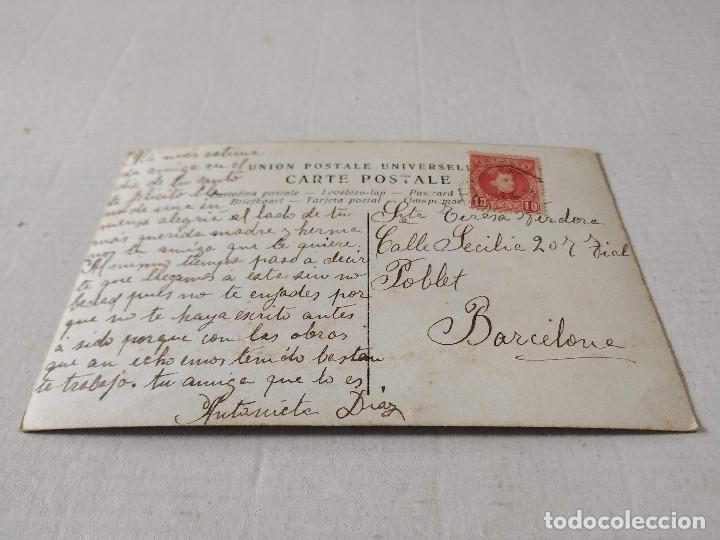 UNION POSTALE UNIVERSELLE
CARTE POSTALE
Cartolina postale – Levelezo-lap – Postcard
Briefkaart – Tarjeta postal –
10 10
mas
amiga en el
dia de tu
te
de que en
mensa alegria al lado de tu
mas querida madre y herma
tu amiga que te quiere.
Al mismo tiempo paso a decir
te que llegamos á esta sin no
bedad pues no te enfades por
que no te haya escrito antes
á sido porque con las obras
que an echo emos tenido bastan
te trabajo. tu amiga que lo es
Antonieta Diaz
Srta Teresa Verdera
Calle Secilia 207
Poblet
Barcelona
todocoleccion.net